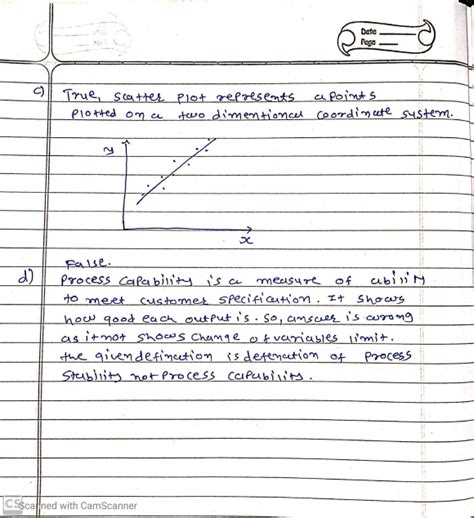 Date
Page
c) True, scatter plot represents a points
plotted on a two dimentional coordinate system.
y
x
False.
d) Process capability is a measure of ability
to meet customer specification. It shows
how good each output is. So, answer is wrong
as it not shows change of variables limit.
the given defination is defenation of process
stability not process capability.
CS Scanned with CamScanner